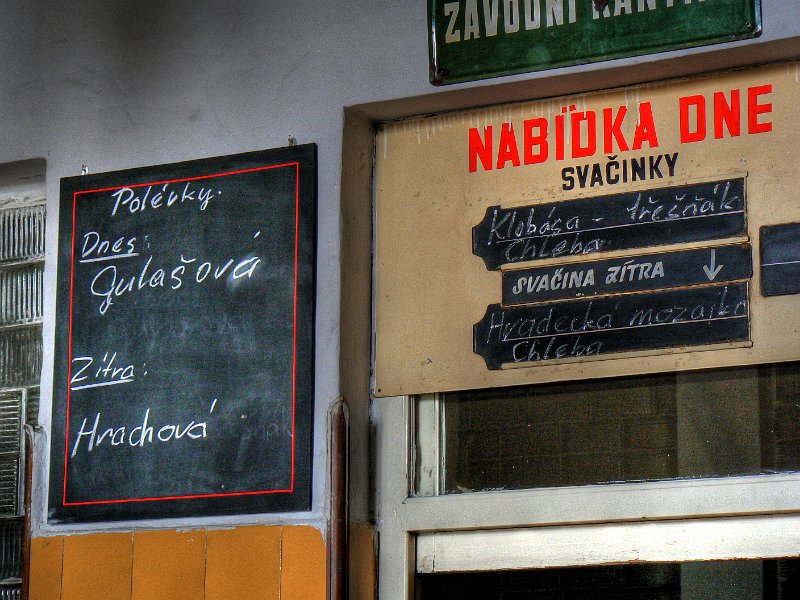 ZÁVODNÍ
Polévky.
Dnes:
Gulašová
Zítra:
Hrachová
NABÍDKA DNE
SVAČINKY
Klobása - třešňák
Chleba
SVAČINA ZÍTRA ↓
Hradecká mozaika
Chleba